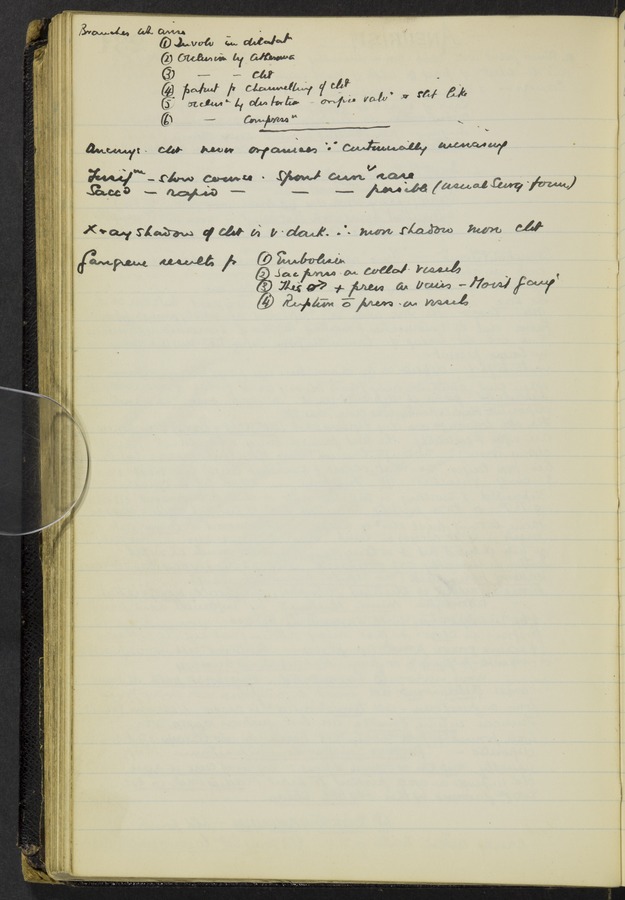 Branches wh. arise
① Involv in dilatat
② Occlusion by Atheroma
③ — — clot
④ patent fr channelling of clot
⑤ occlusⁿ by distortion - orifice
⑥ — compressⁿ
Aneurys. clot never organises ∵ continually increasing
Fusifᵐ — slow course. Spont cure rare
Saccᵈ — rapid — — — possible (usual Surg. form)
X-ray shadow of clot is v. dark. ∴ more shadow more clot
Gangrene results fr ① Embolism
② Sac press on collat. vessels
③ + press on veins - Moist Gang
④ Ruption c̄ press. on vessels